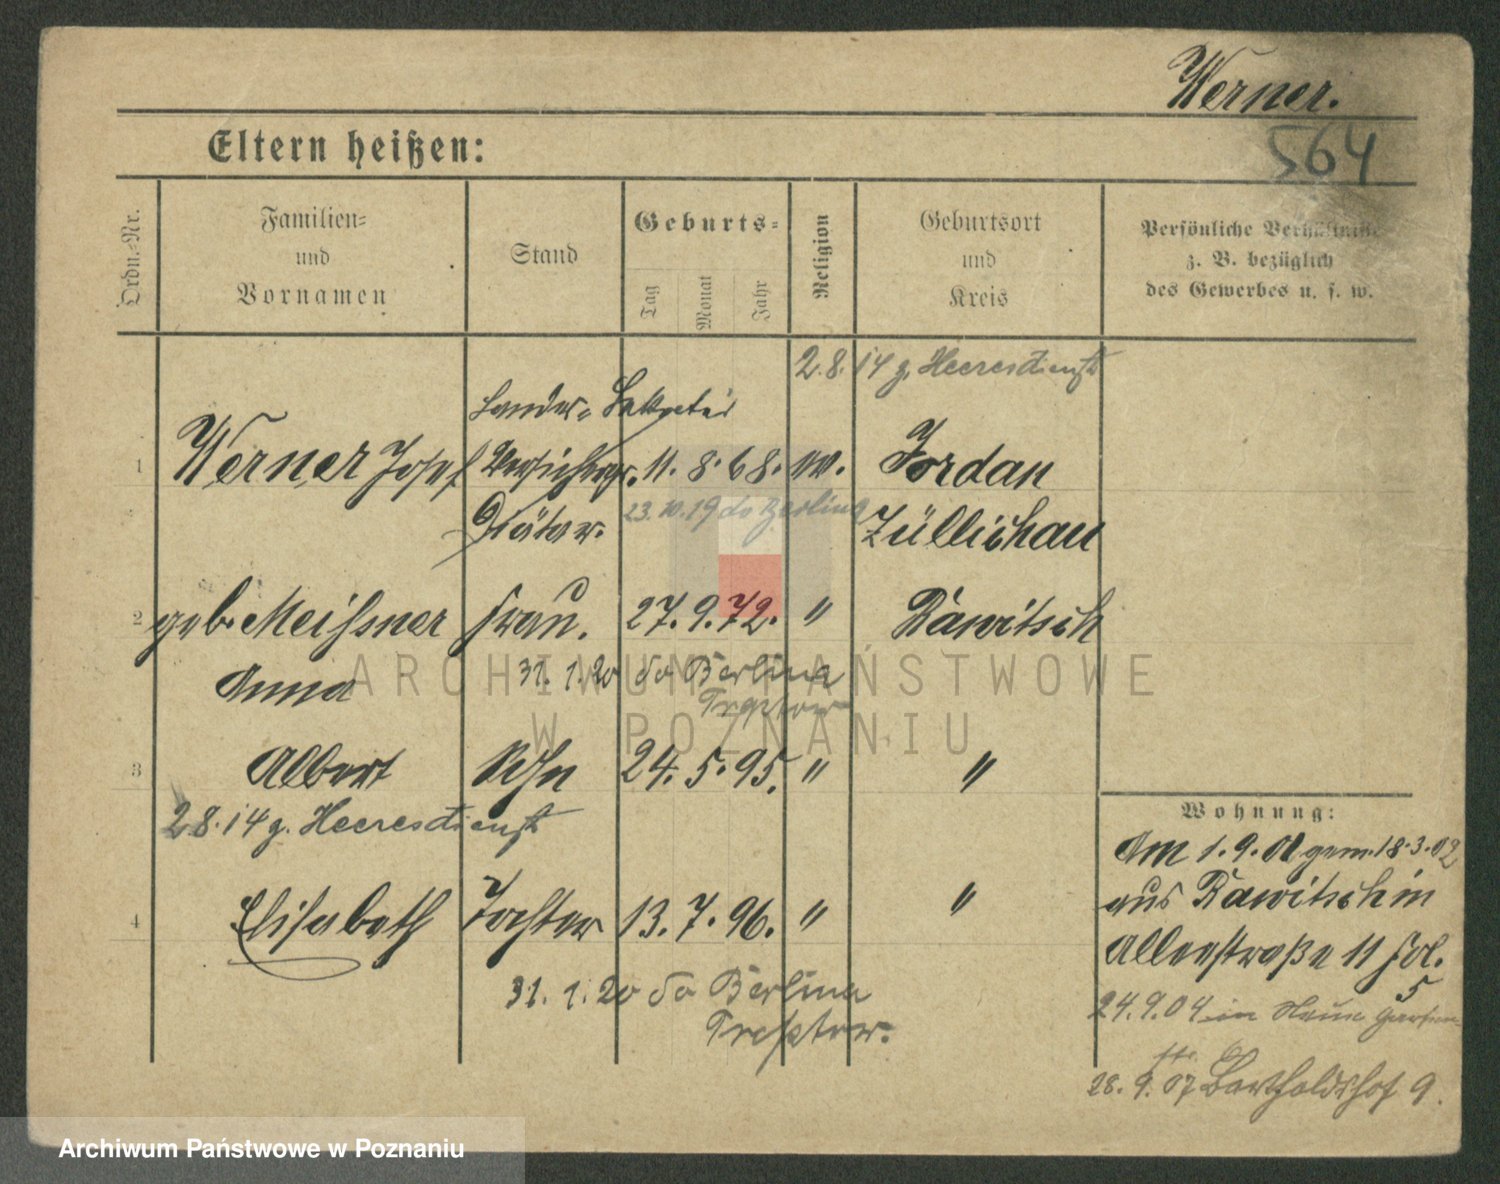 Werner.
564
Eltern heißen:
Ordn.-Nr.
Familien-
und
Vornamen
Stand
Geburts-
Tag
Monat
Jahr
Religion
Geburtsort
und
Kreis
Persönliche Verhältnisse
z. B. bezüglich
des Gewerbes u. s. w.
2.8.14 z. Heeresdienst
Landes- Sekretär
1 Werner Josef Versichrgs. 11. 8. 68. Jordan
Diätar. 23.10.19 do Berlina Züllichau
2 geb. Meißner Frau. 27. 9. 72. " Rawitsch
Anna 31.1.20 do Berlina
Treptow
3 Albert Sohn 24. 5. 95. " "
2 8. 14 z. Heeresdienst
4 Elisabeth Tochter 13. 7. 96. " "
31. 1. 20 do Berlina
Treptow.
Wohnung:
Am 1. 9. 01 gem. 18. 3. 02
aus Rawitsch in
Alleestraße 11 Fol.
5
24. 9. 04 in Neue Garten
str. 6
28. 9. 07 Bartholdshof 9.
ARCHIWUM PAŃSTWOWE
W POZNANIU
Archiwum Państwowe w Poznaniu